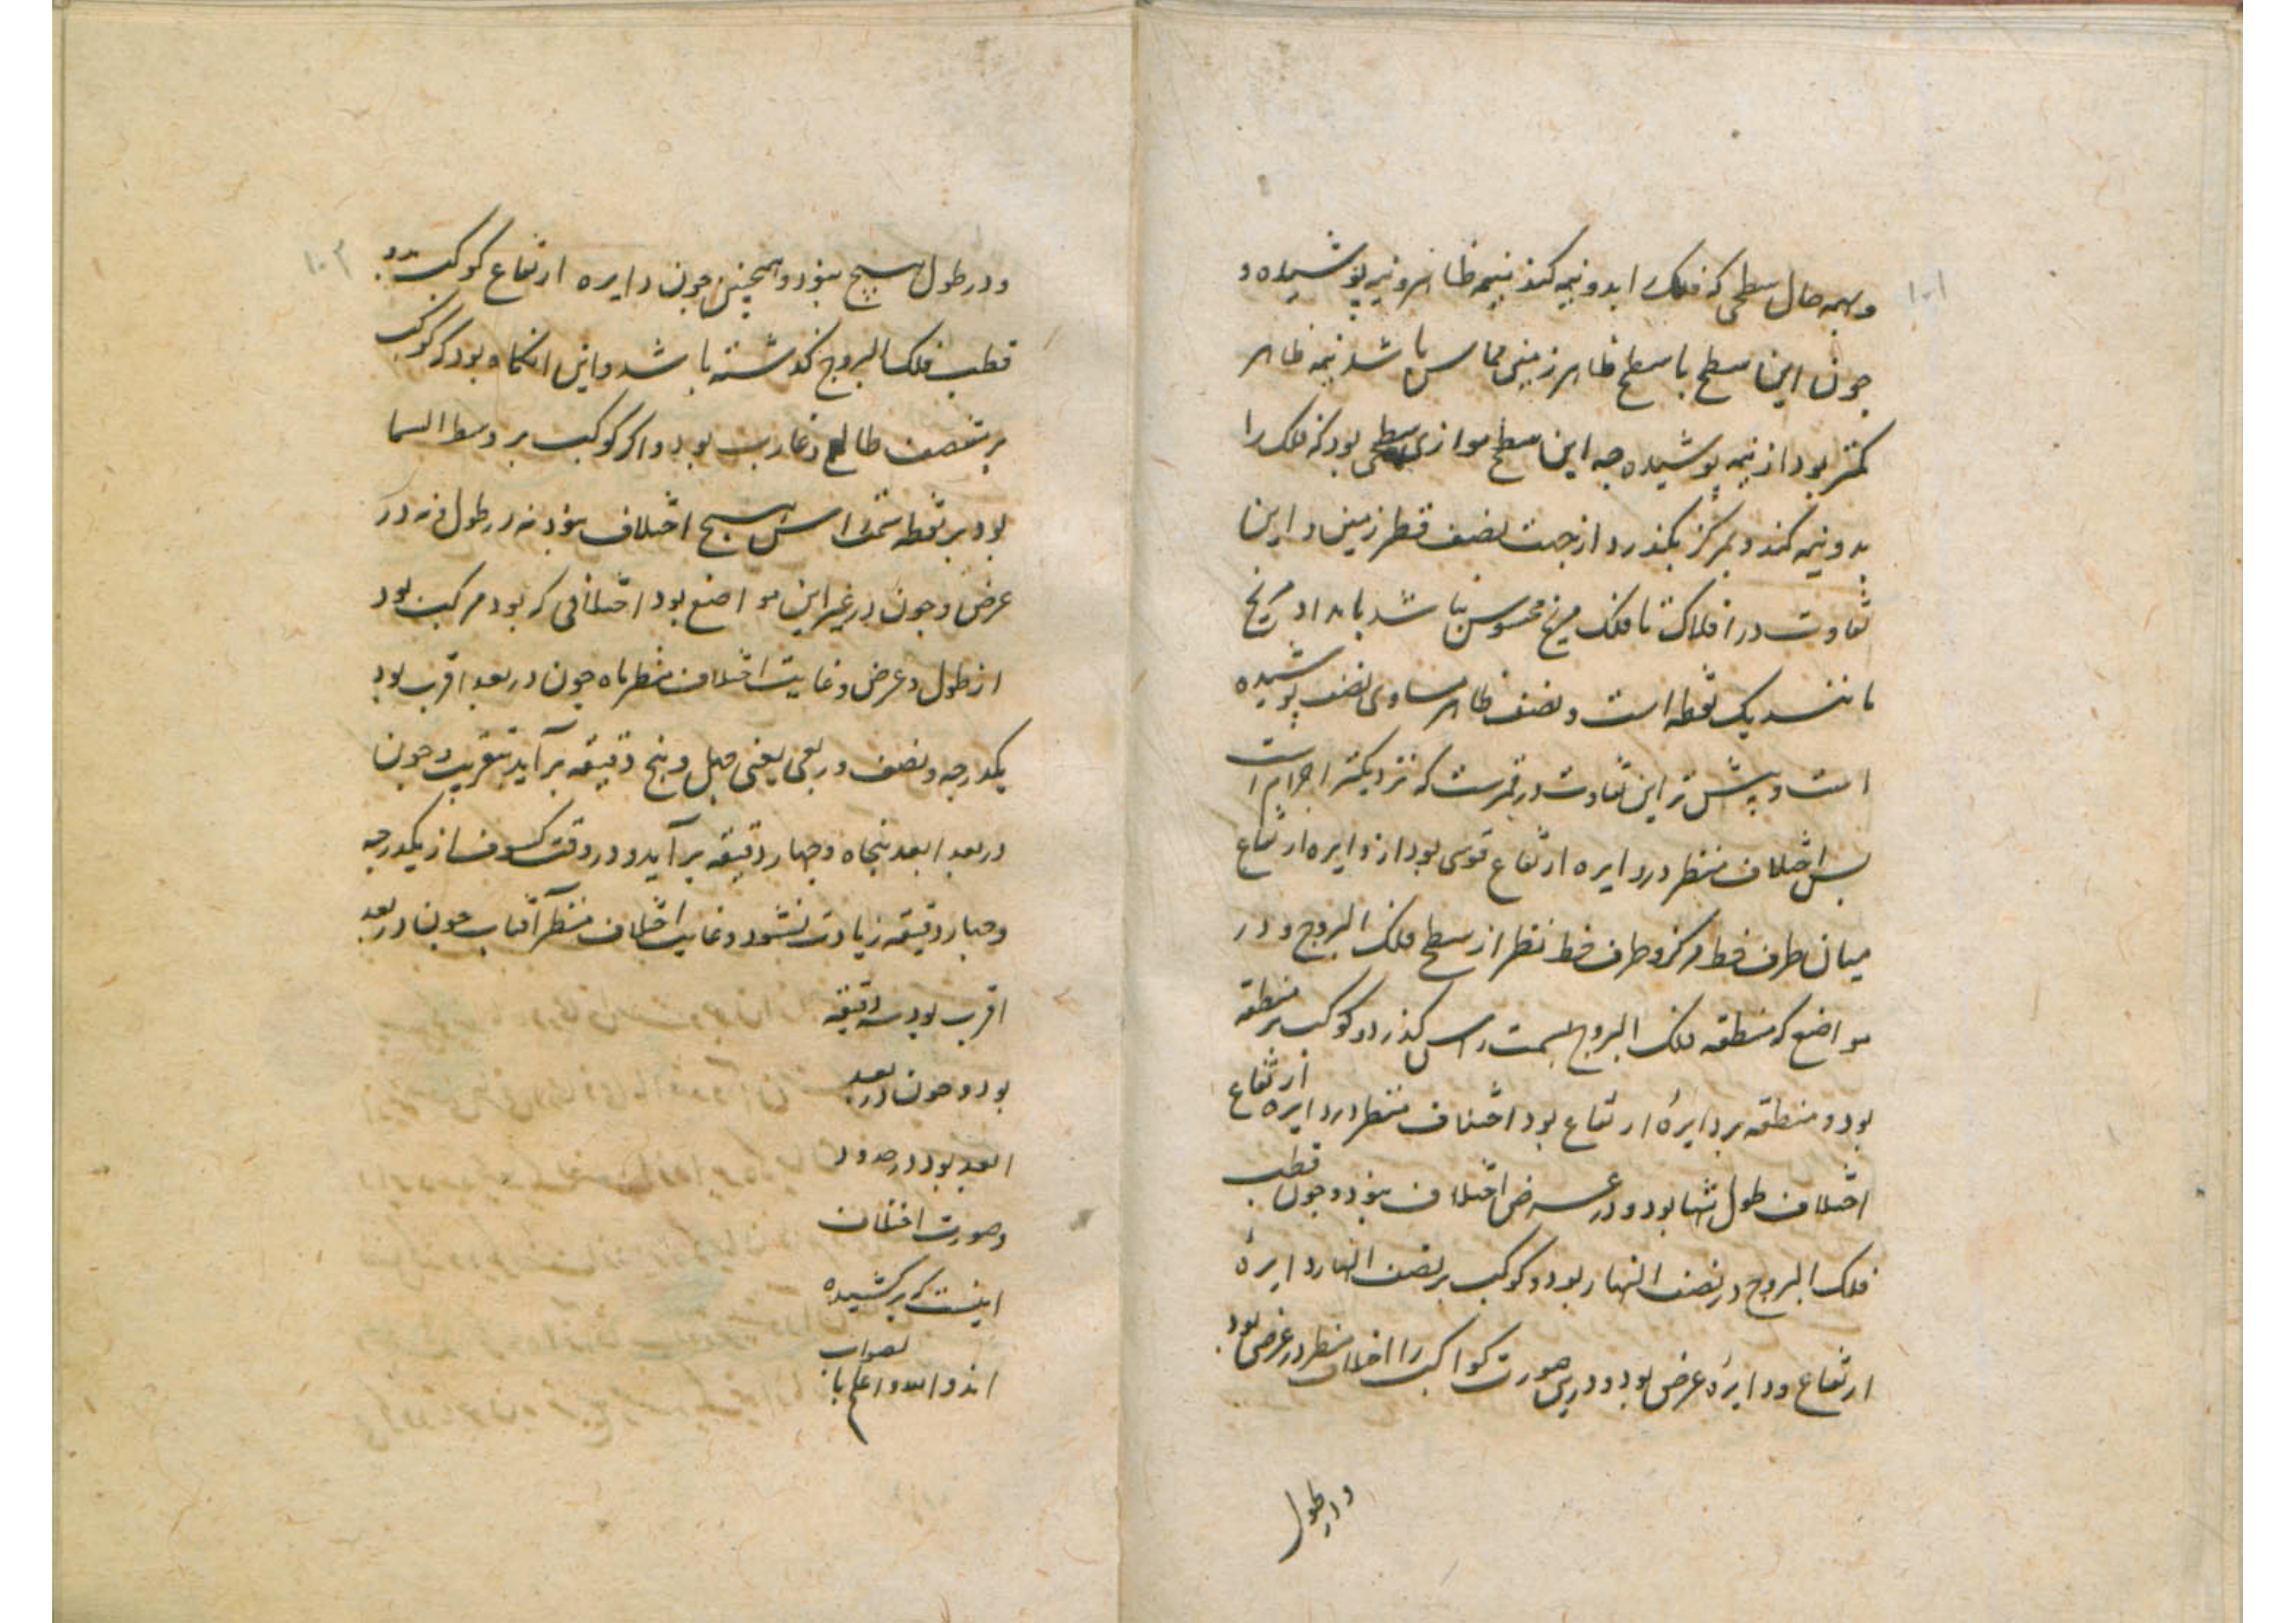 ۱۰۱
و بهمه حال سطحی که فلک را بدو نیمه کند نیمه ظاهر و نیمه پوشیده و
چون این سطح با سطح ظاهر زمین مماس باشد نیمه ظاهر
کمتر بود از نیمه پوشیده چه این سطح موازی سطحی بود که فلک را
بدو نیمه کند و بمرکز بگذرد از جهت نصف قطر زمین و این
تفاوت در افلاک تا فلک مریخ محسوس نباشد با مدار مریخ
مانند یک نقطه است و نصف ظاهر مساوی نصف پوشیده
است و پیش تر این تفاوت در قمرست که نزدیکتر اجرام است
پس اختلاف منظر در دایره ارتفاع قوسی بود از دایره ارتفاع
میان طرف خط مرکز و طرف خط نظر از سطح فلک البروج و در
مواضع که منطقه فلک البروج بسمت راس گذرد و کوکب بر منطقه
بود و منطقه بر دایرهٔ ارتفاع بود اختلاف منظر در دایره ارتفاع
اختلاف طول تنها بود و در عرض اختلاف نبود و چون قطب
فلک البروج در نصف النهار بود و کوکب بر نصف النهار دایرهٔ
ارتفاع و دایرهٔ عرض بود و درین صورت کواکب را اختلاف منظر در عرض بود
و در طول
۱۰۲
و در طول هیچ نبود و همچنین چون دایره ارتفاع کوکب بدو
قطب فلک البروج گذشته باشد و این آنگاه بود که کوکب
بر منتصف طالع و غارب بود و اگر کوکب بر وسط السما
بود بر نقطه سمت راس هیچ اختلاف نبود نه در طول و نه در
عرض و چون در غیر این مواضع بود اختلافی که بود مرکب بود
از طول و عرض و غایت اختلاف منظر ماه چون در بعد اقرب بود
یکدرجه و نصف و ربعی یعنی چهل و پنج دقیقه بر آید بتقریب و چون
در بعد ابعد پنجاه و چهار دقیقه بر آید و در وقت کسوف از یکدرجه
و چهار دقیقه زیادت نشود و غایت اختلاف منظر آفتاب چون در بعد
اقرب بود سه دقیقه
بود و چون در بعد
ابعد بود در حدود
و صورت اختلاف
اینست که بر کشیده
اند و الله اعلم بالصواب